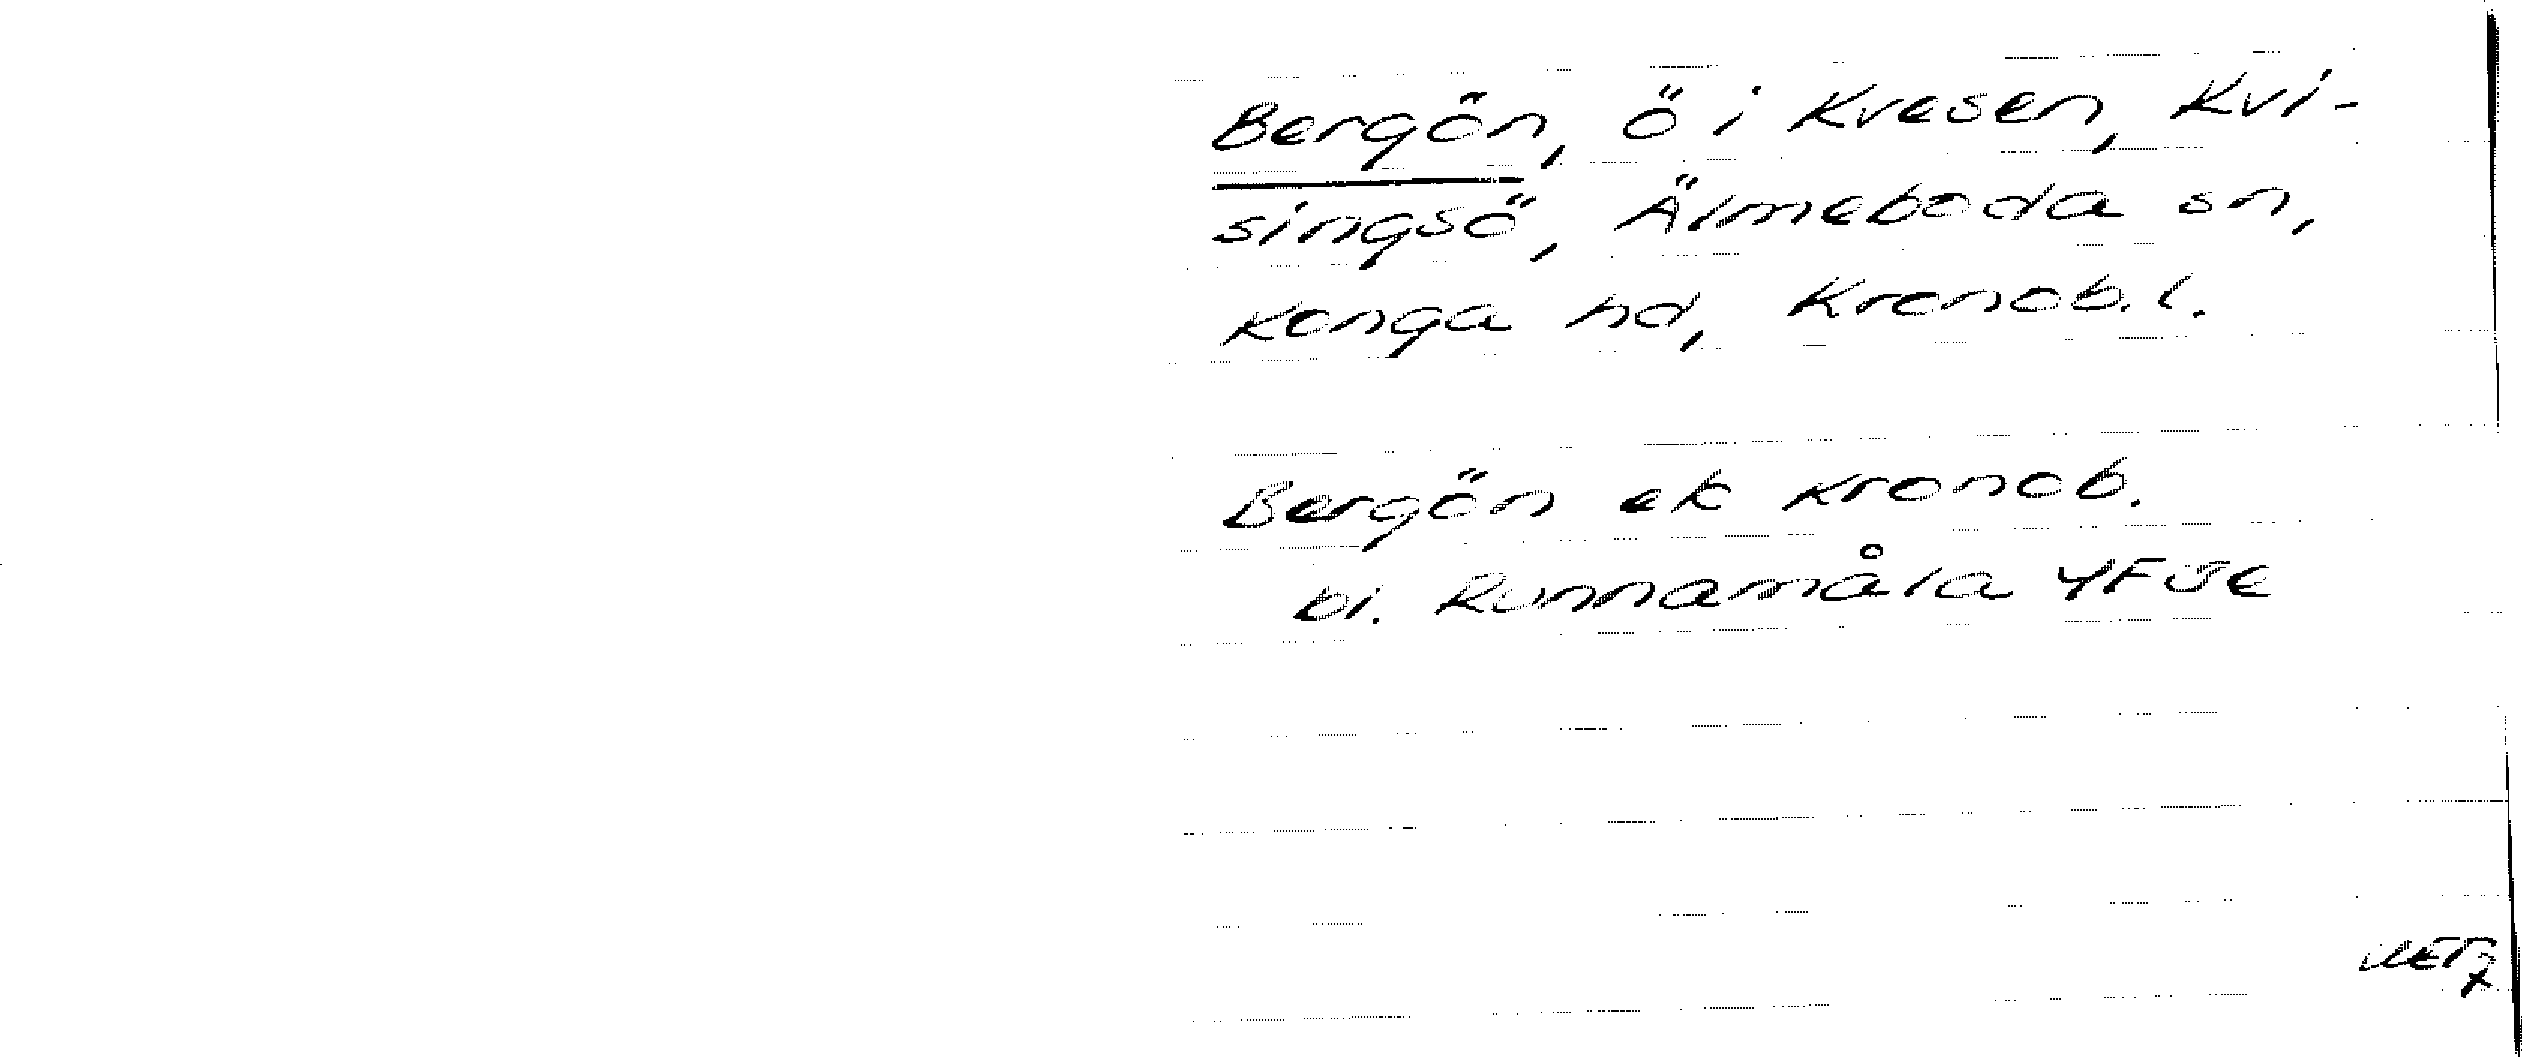 Bergön, ö i Kvesen, Kvi-
singsö, Älmeboda sn,
Konga hd, Kronob. l.
Bergön ek Kronob.
bl. Runnamåla 4F Je